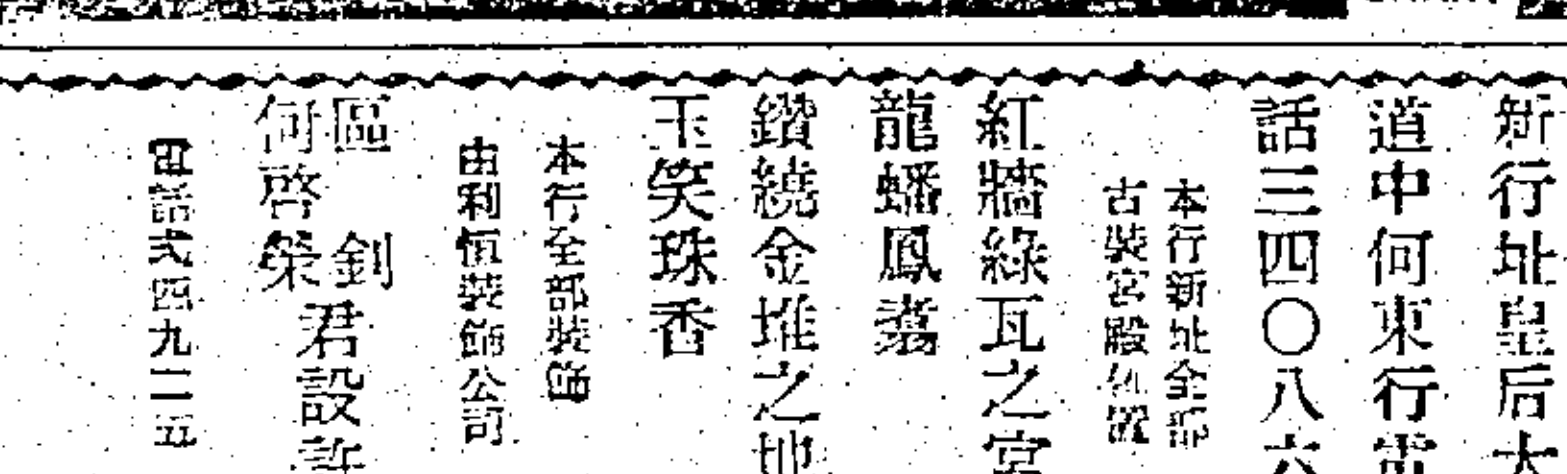 新行址皇后大
道中何東行電
話三四〇八六
本行新址全部
古裝宮殿佈置
紅牆綠瓦之宮
龍蟠鳳翥
鑽繞金堆之地
玉笑珠香
本行全部裝飾
由利恒裝飾公司
區釗
何啓榮
君設計
電話弍四九二五